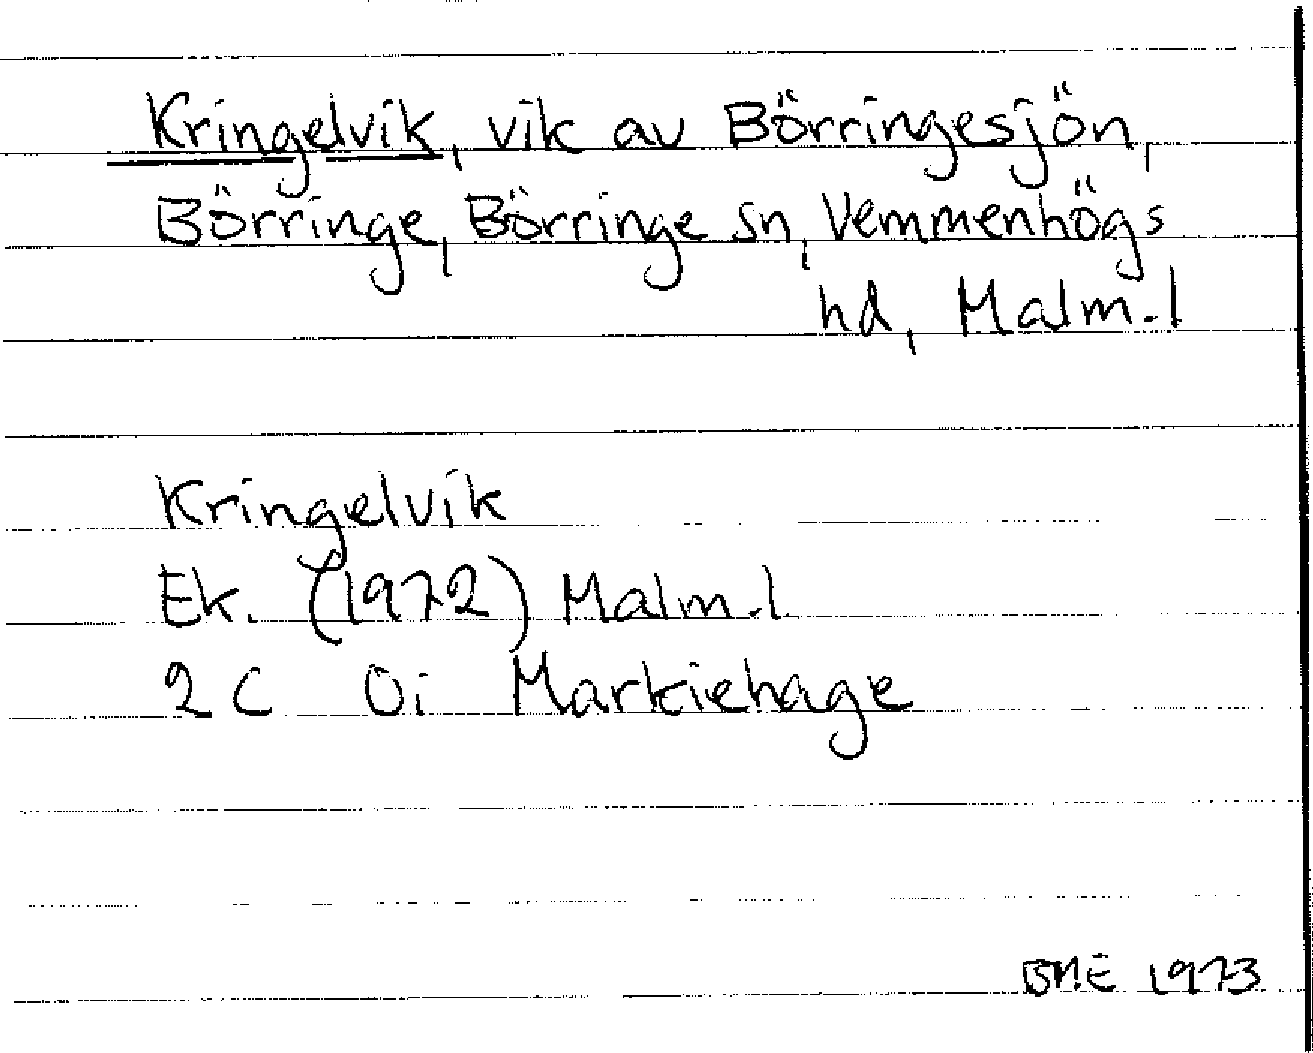 Kringelvik, vik av Börringesjön,
Börringe, Börringe sn, Vemmenhögs
hd, Malm.l
Kringelvik
Ek. (1972) Malm.l.
2 C 0i Markiehage
BME 1973